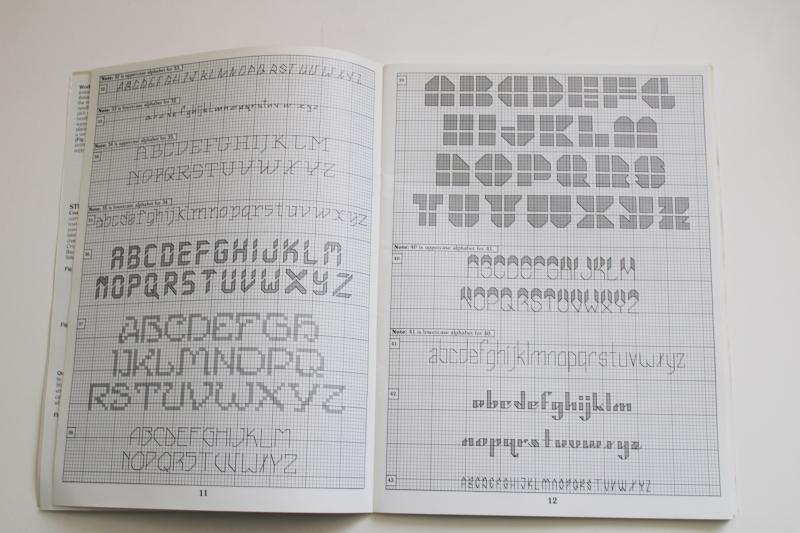 Note: 32 is uppercase alphabet for 33.
32
ABCDEFGHIJKLMNOPQRSTUVWXYZ
Note: 33 is lowercase alphabet for 32.
33
abcdefghijklmnopqrstuvwxyz
Note: 34 is uppercase alphabet for 35.
34
ABCDEFGHIJKLM
NOPQRSTUVWXYZ
Note: 35 is lowercase alphabet for 34.
35
abcdefghijklmnopqrstuvwxyz
36
ABCDEFGHIJKLM
NOPQRSTUVWXYZ
37
ABCDEFGH
IJKLMNOPQ
RSTUVWXYZ
38
ABCDEFGHIJKLM
NOPQRSTUVWXYZ
11
39
ABCDEFG
HIJKLM
NOPQRS
TUVWXYZ
Note: 40 is uppercase alphabet for 41.
40
ABCDEFGHIJKLM
NOPQRSTUVWXYZ
Note: 41 is lowercase alphabet for 40.
41
abcdefghijklmnopqrstuvwxyz
42
abcdefghijklm
nopqrstuvwxyz
43
ABCDEFGHIJKLMNOPQRSTUVWXYZ
12